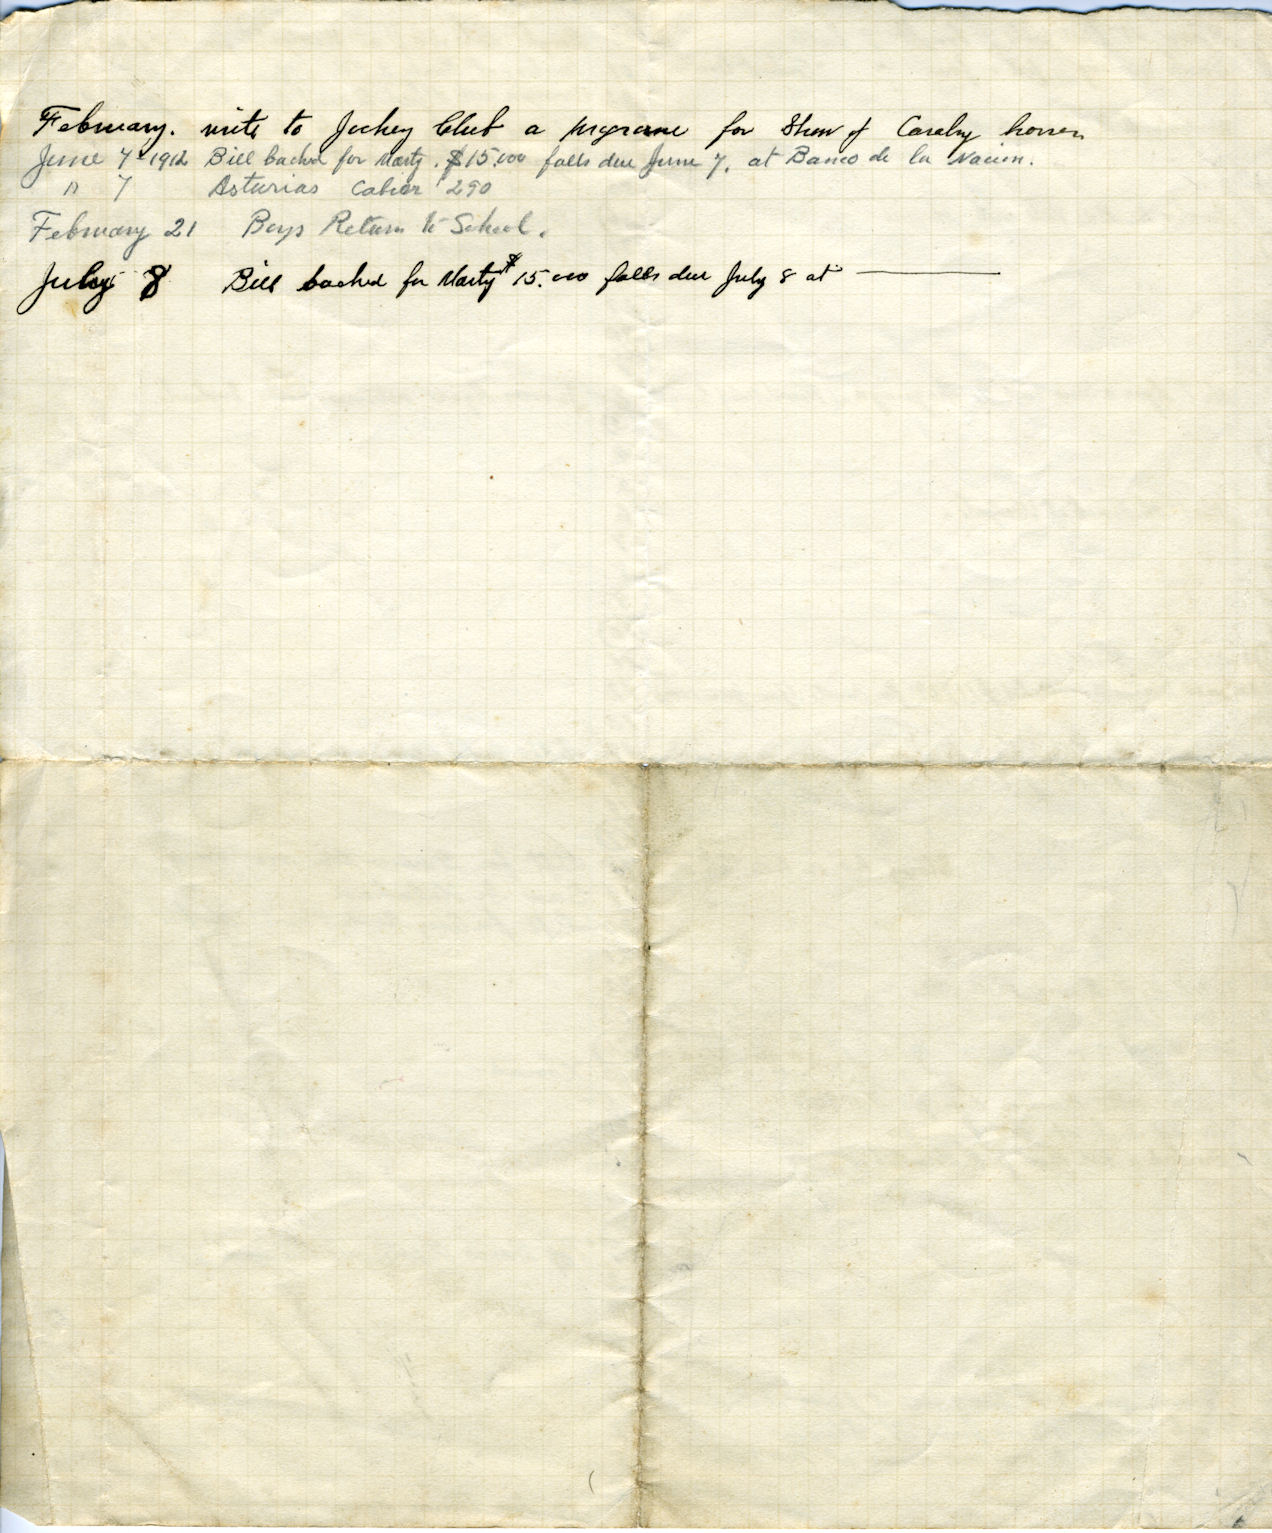 February. write to Jockey Club a programe for Show of Cavalry horses
June 7 1912 Bill backed for Marty. $15.000 falls due June 7, at Banco de la Nacion.
" 7 Asturias 290
February 21 Boys Return to School.
July 8 Bill backed for Marty $15.000 falls due July 8 at